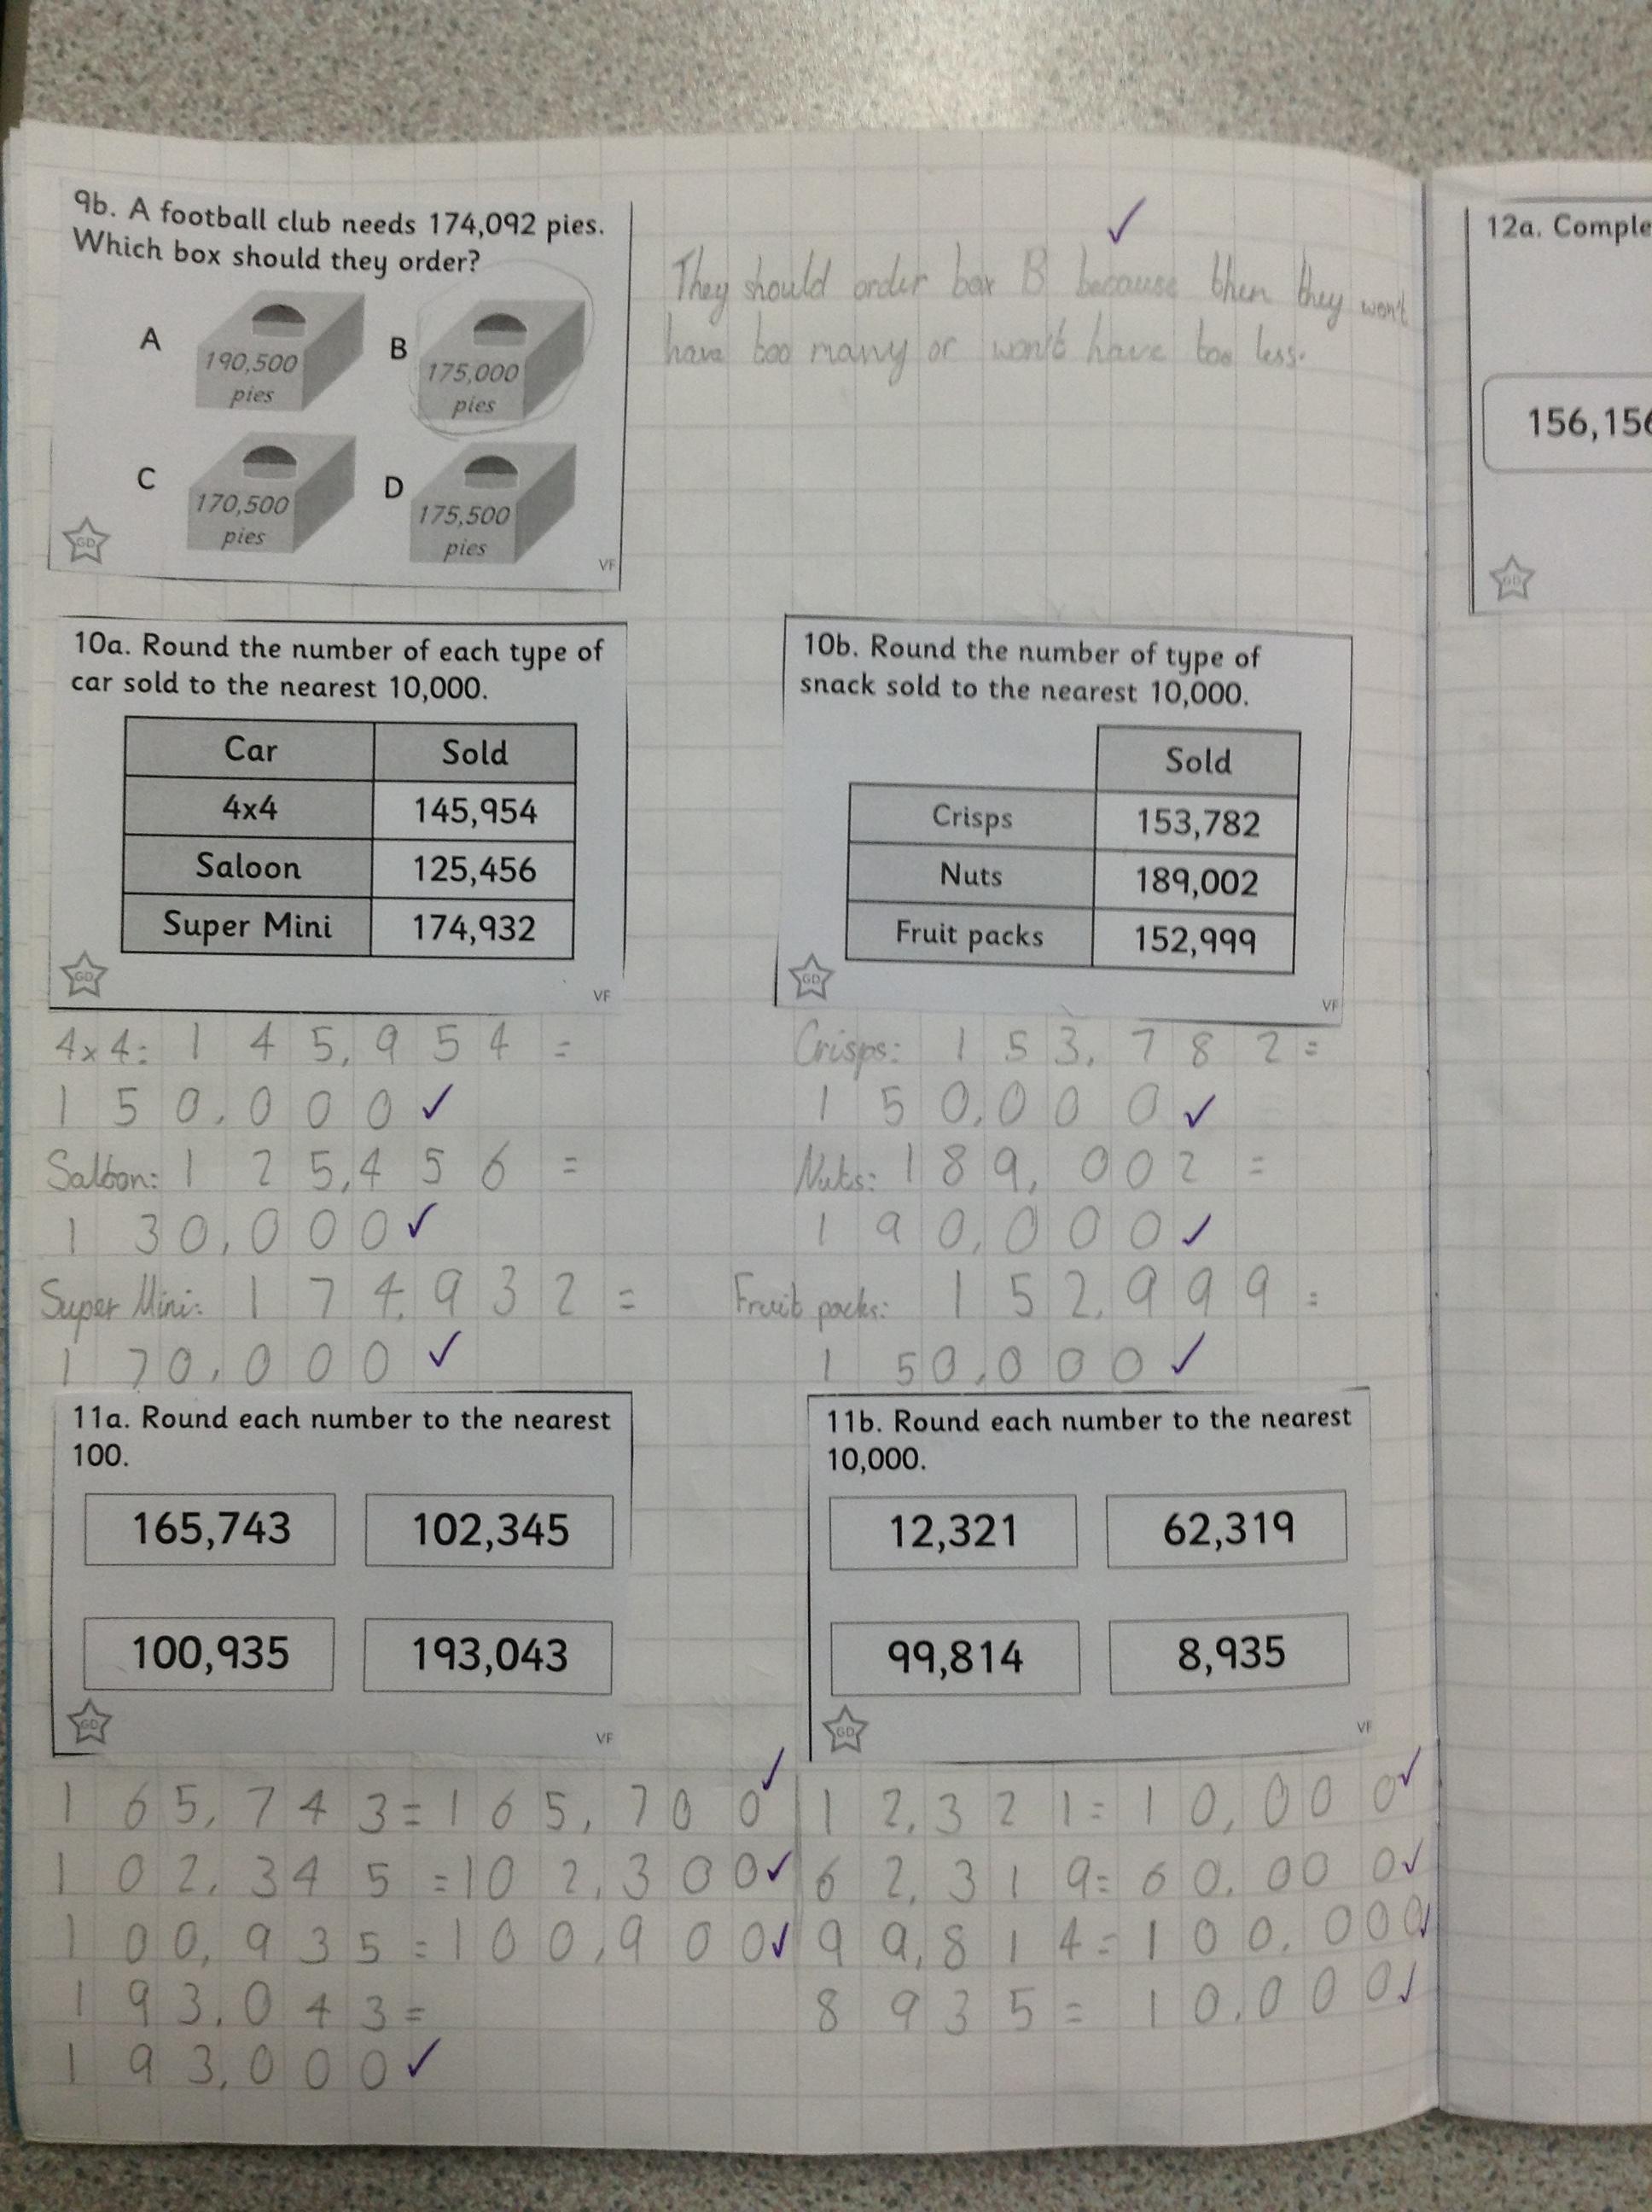 9b. A football club needs 174,092 pies.
Which box should they order?
A
190,500
pies
B
175,000
pies
C
170,500
pies
D
175,500
pies
GD
VF
They should order box B because then they won't
have too many or won't have too less.
12a. Comple
156,156
GD
10a. Round the number of each type of
car sold to the nearest 10,000.
Car Sold
4x4 145,954
Saloon 125,456
Super Mini 174,932
GD
VF
4x4: 145,954 =
150,000
Saloon: 125,456 =
130,000
Super Mini: 174,932 =
170,000
10b. Round the number of type of
snack sold to the nearest 10,000.
Sold
Crisps 153,782
Nuts 189,002
Fruit packs 152,999
GD
VF
Crisps: 153,782 =
150,000
Nuts: 189,002 =
190,000
Fruit packs: 152,999 =
150,000
11a. Round each number to the nearest
100.
165,743 102,345
100,935 193,043
GD
VF
165,743 = 165,700
102,345 = 102,300
100,935 = 100,900
193,043 =
193,000
11b. Round each number to the nearest
10,000.
12,321 62,319
99,814 8,935
GD
VF
12,321 = 10,000
62,319 = 60,000
99,814 = 100,000
8935 = 10,000